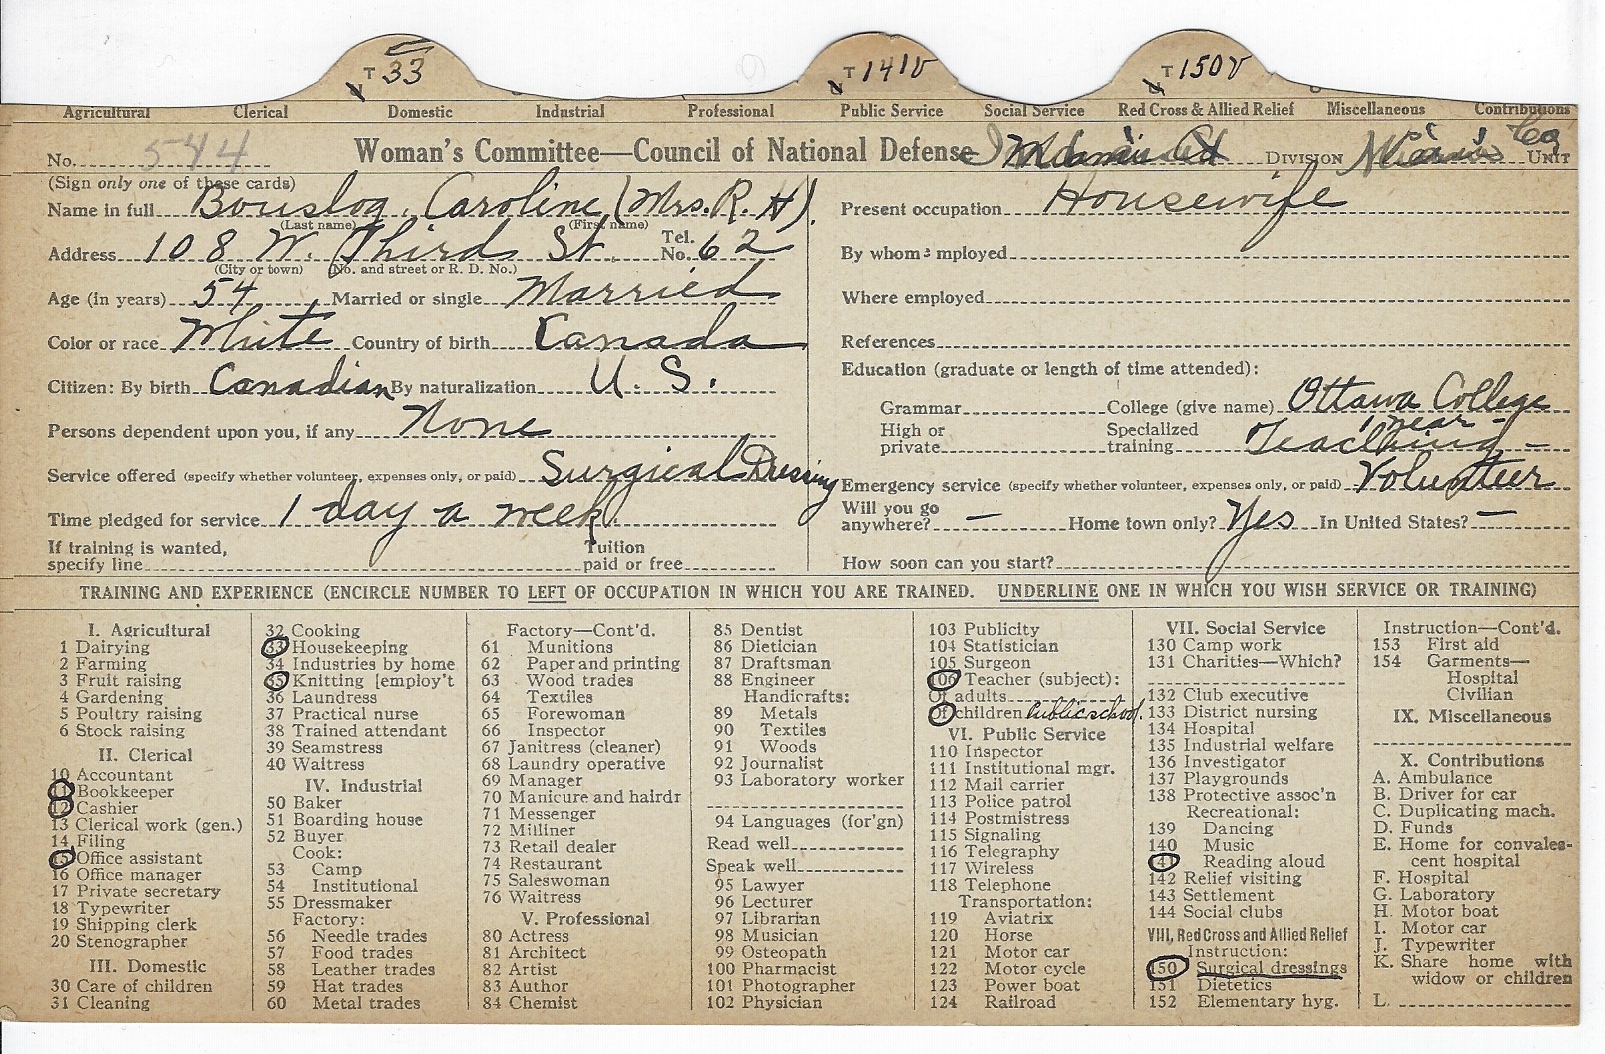 T 33 T 141 v T 150 v
Agricultural Clerical Domestic Industrial Professional Public Service Social Service Red Cross & Allied Relief Miscellaneous Contributions
No. 544 Woman's Committee—Council of National Defense DIVISION Co UNIT
(Sign only one of these cards)
Name in full Bouslog, Caroline (Mrs. R. H).
(Last name) (First name)
Address 108 W. Third St. Tel. No. 62
(City or town) (No. and street or R. D. No.)
Age (in years) 54 Married or single Married
Color or race White Country of birth Canada
Citizen: By birth Canadian By naturalization U. S.
Persons dependent upon you, if any None
Service offered (specify whether volunteer, expenses only, or paid) Surgical Dressing
Time pledged for service 1 day a week
If training is wanted, specify line Tuition paid or free
Present occupation Housewife
By whom employed
Where employed
References
Education (graduate or length of time attended):
Grammar College (give name) Ottawa College
1 year -
High or private Specialized training Teaching -
Emergency service (specify whether volunteer, expenses only, or paid) Volunteer
Will you go anywhere? — Home town only? Yes In United States? —
How soon can you start?
TRAINING AND EXPERIENCE (ENCIRCLE NUMBER TO LEFT OF OCCUPATION IN WHICH YOU ARE TRAINED. UNDERLINE ONE IN WHICH YOU WISH SERVICE OR TRAINING)
I. Agricultural
1 Dairying
2 Farming
3 Fruit raising
4 Gardening
5 Poultry raising
6 Stock raising
II. Clerical
10 Accountant
11 Bookkeeper
12 Cashier
13 Clerical work (gen.)
14 Filing
15 Office assistant
16 Office manager
17 Private secretary
18 Typewriter
19 Shipping clerk
20 Stenographer
III. Domestic
30 Care of children
31 Cleaning
32 Cooking
33 Housekeeping
34 Industries by home
35 Knitting [employ't
36 Laundress
37 Practical nurse
38 Trained attendant
39 Seamstress
40 Waitress
IV. Industrial
50 Baker
51 Boarding house
52 Buyer
Cook:
53 Camp
54 Institutional
55 Dressmaker
Factory:
56 Needle trades
57 Food trades
58 Leather trades
59 Hat trades
60 Metal trades
Factory—Cont'd.
61 Munitions
62 Paper and printing
63 Wood trades
64 Textiles
65 Forewoman
66 Inspector
67 Janitress (cleaner)
68 Laundry operative
69 Manager
70 Manicure and hairdr
71 Messenger
72 Milliner
73 Retail dealer
74 Restaurant
75 Saleswoman
76 Waitress
V. Professional
80 Actress
81 Architect
82 Artist
83 Author
84 Chemist
85 Dentist
86 Dietician
87 Draftsman
88 Engineer
Handicrafts:
89 Metals
90 Textiles
91 Woods
92 Journalist
93 Laboratory worker
94 Languages (for'gn)
Read well
Speak well
95 Lawyer
96 Lecturer
97 Librarian
98 Musician
99 Osteopath
100 Pharmacist
101 Photographer
102 Physician
103 Publicity
104 Statistician
105 Surgeon
106 Teacher (subject):
Of adults
Of children Public school.
VI. Public Service
110 Inspector
111 Institutional mgr.
112 Mail carrier
113 Police patrol
114 Postmistress
115 Signaling
116 Telegraphy
117 Wireless
118 Telephone
Transportation:
119 Aviatrix
120 Horse
121 Motor car
122 Motor cycle
123 Power boat
124 Railroad
VII. Social Service
130 Camp work
131 Charities—Which?
132 Club executive
133 District nursing
134 Hospital
135 Industrial welfare
136 Investigator
137 Playgrounds
138 Protective assoc'n
Recreational:
139 Dancing
140 Music
141 Reading aloud
142 Relief visiting
143 Settlement
144 Social clubs
VIII. Red Cross and Allied Relief
Instruction:
150 Surgical dressings
151 Dietetics
152 Elementary hyg.
Instruction—Cont'd.
153 First aid
154 Garments—
Hospital
Civilian
IX. Miscellaneous
X. Contributions
A. Ambulance
B. Driver for car
C. Duplicating mach.
D. Funds
E. Home for convales-
cent hospital
F. Hospital
G. Laboratory
H. Motor boat
I. Motor car
J. Typewriter
K. Share home with
widow or children
L.